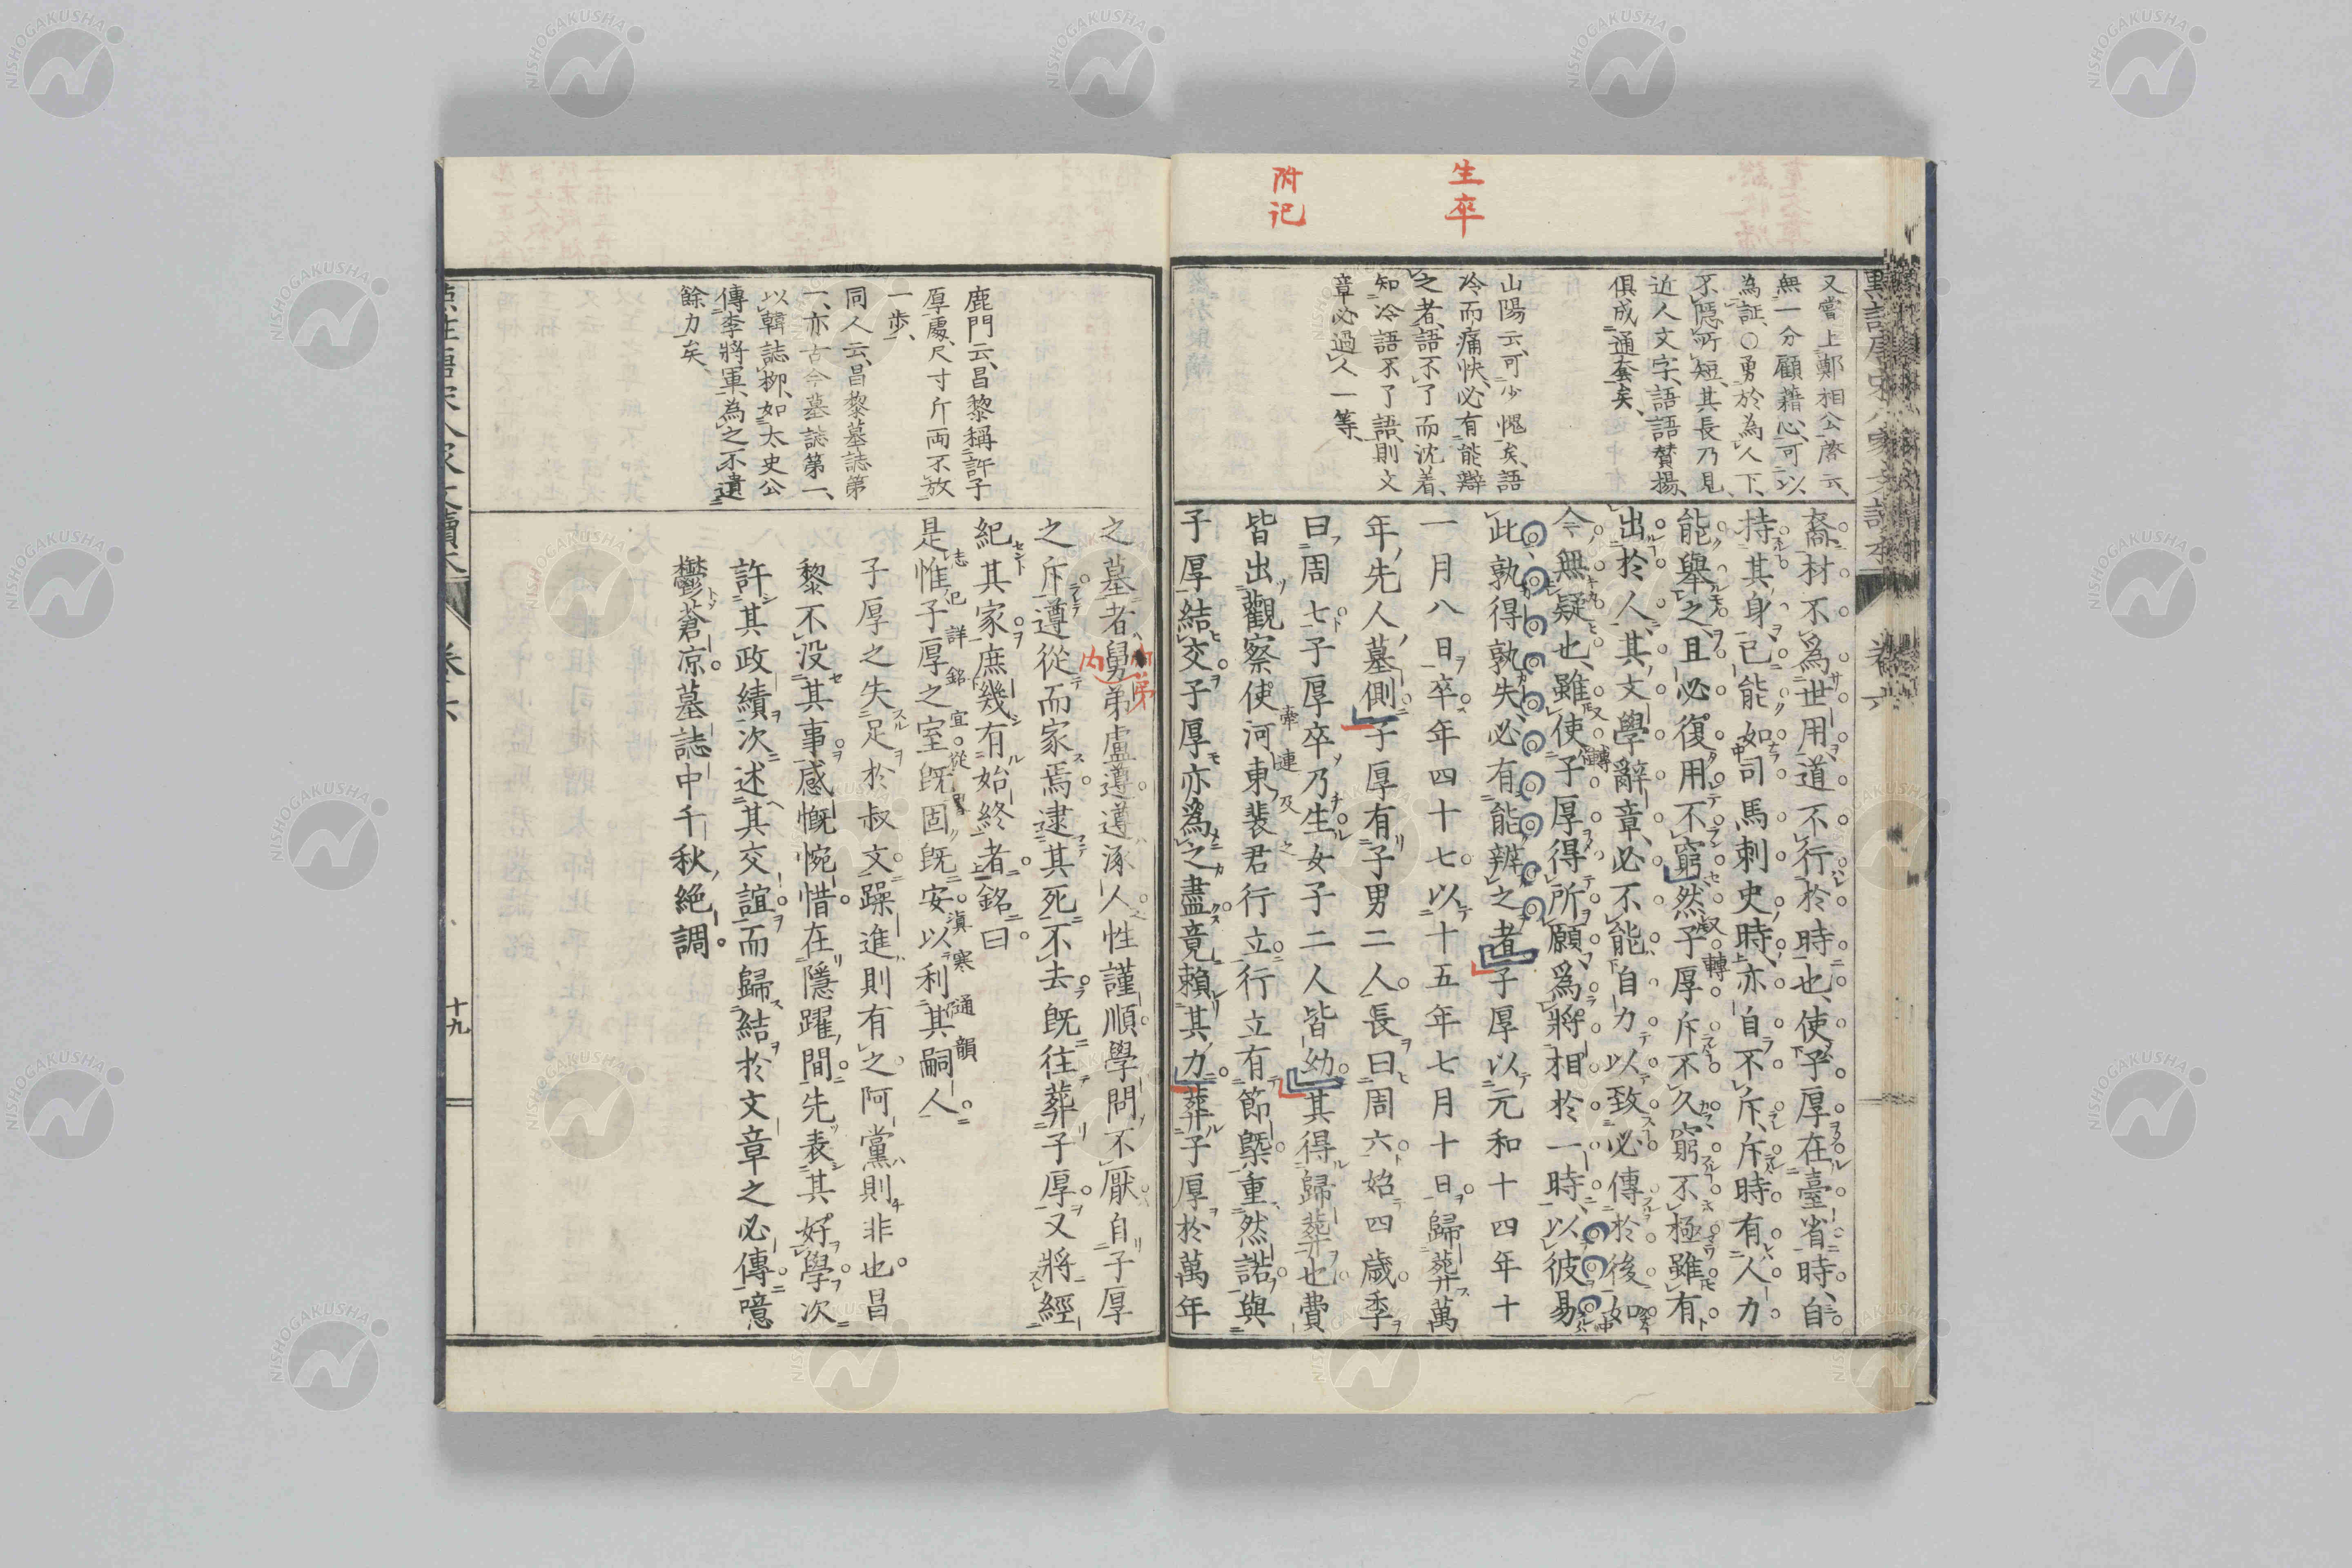 生卒
附記
又嘗上鄭相公啓云、
無一分顧藉心、可以
為証、○勇於為人下、
不隱所短、其長乃見、
近人文字、語語贊揚、
俱成通套矣、
山陽云、可少愧矣、語
冷而痛快、必有能辯
之者、語不了而沈着、
知冷語不了語、則文
章必過人一等、
裔材不為世用道不行於時也、使子厚在臺省時、自
持其身已能如司馬刺史時、亦自不斥、斥時有人力
能舉之、且必復用不窮然子厚斥不久窮不極雖有
出於人、其文學辭章、必不能自力以致必傳於後如
今無疑也、雖使子厚得所願為將相於一時、以彼易
此孰得孰失、必有能辨之者子厚以元和十四年十
一月八日卒年四十七以十五年七月十日歸葬萬
年先人墓側子厚有子男二人長曰周六始四歲季
曰周七子厚卒乃生女子二人皆幼其得歸葬也費
皆出觀察使河東裴君行立行立有節槩重然諾與
子厚結交子厚亦為之盡竟賴其力葬子厚於萬年
鹿門云、昌黎稱許子
厚處、尺寸斤両不放
一步、
同人云、昌黎墓誌第
一、亦古今墓誌第一、
以韓誌柳、如太史公
傳李將軍、為之不遺
餘力矣、
之墓者舅弟盧遵遵涿人性謹順學問不厭自子厚
之斥遵從而家焉逮其死不去既往葬子厚又將經
紀其家庶幾有始終者銘曰
是惟子厚之室既固既安以利其嗣人
子厚之失足於叔文躁進則有之阿黨則非也昌
黎不没其事感慨惋惜在隱躍間先表其好學次
許其政績次述其交誼而歸結於文章之必傳噫
鬱蒼凉墓誌中千秋絶調
十九